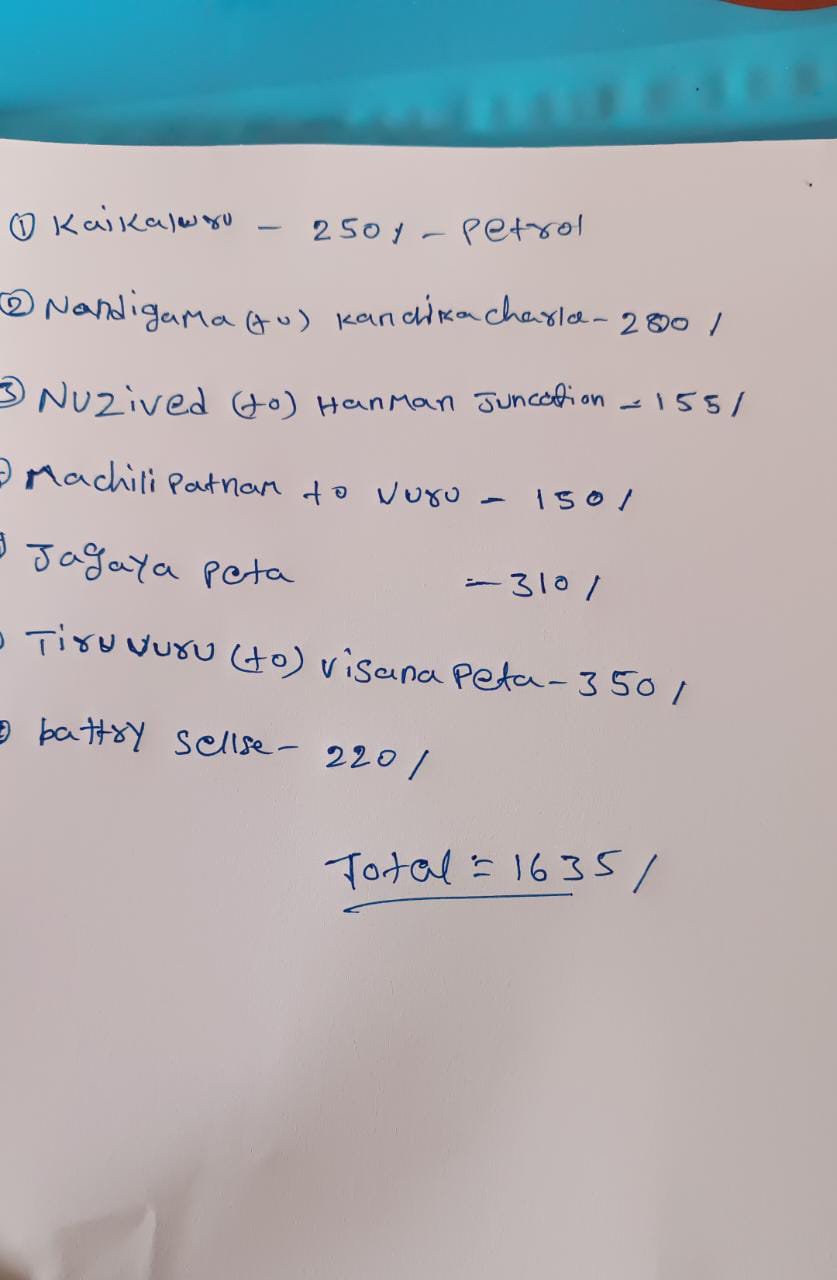 ① Kaikaluru - 250/ - Petrol
② Nandigama (to) kandikacharla - 200/
③ Nuzived (to) Hanman Juncation - 155/
Machili Patnam to Vuru - 150/
Jagaya peta - 310/
Tiruvuru (to) visana Peta - 350/
battry sellse - 220/
Total = 1635/